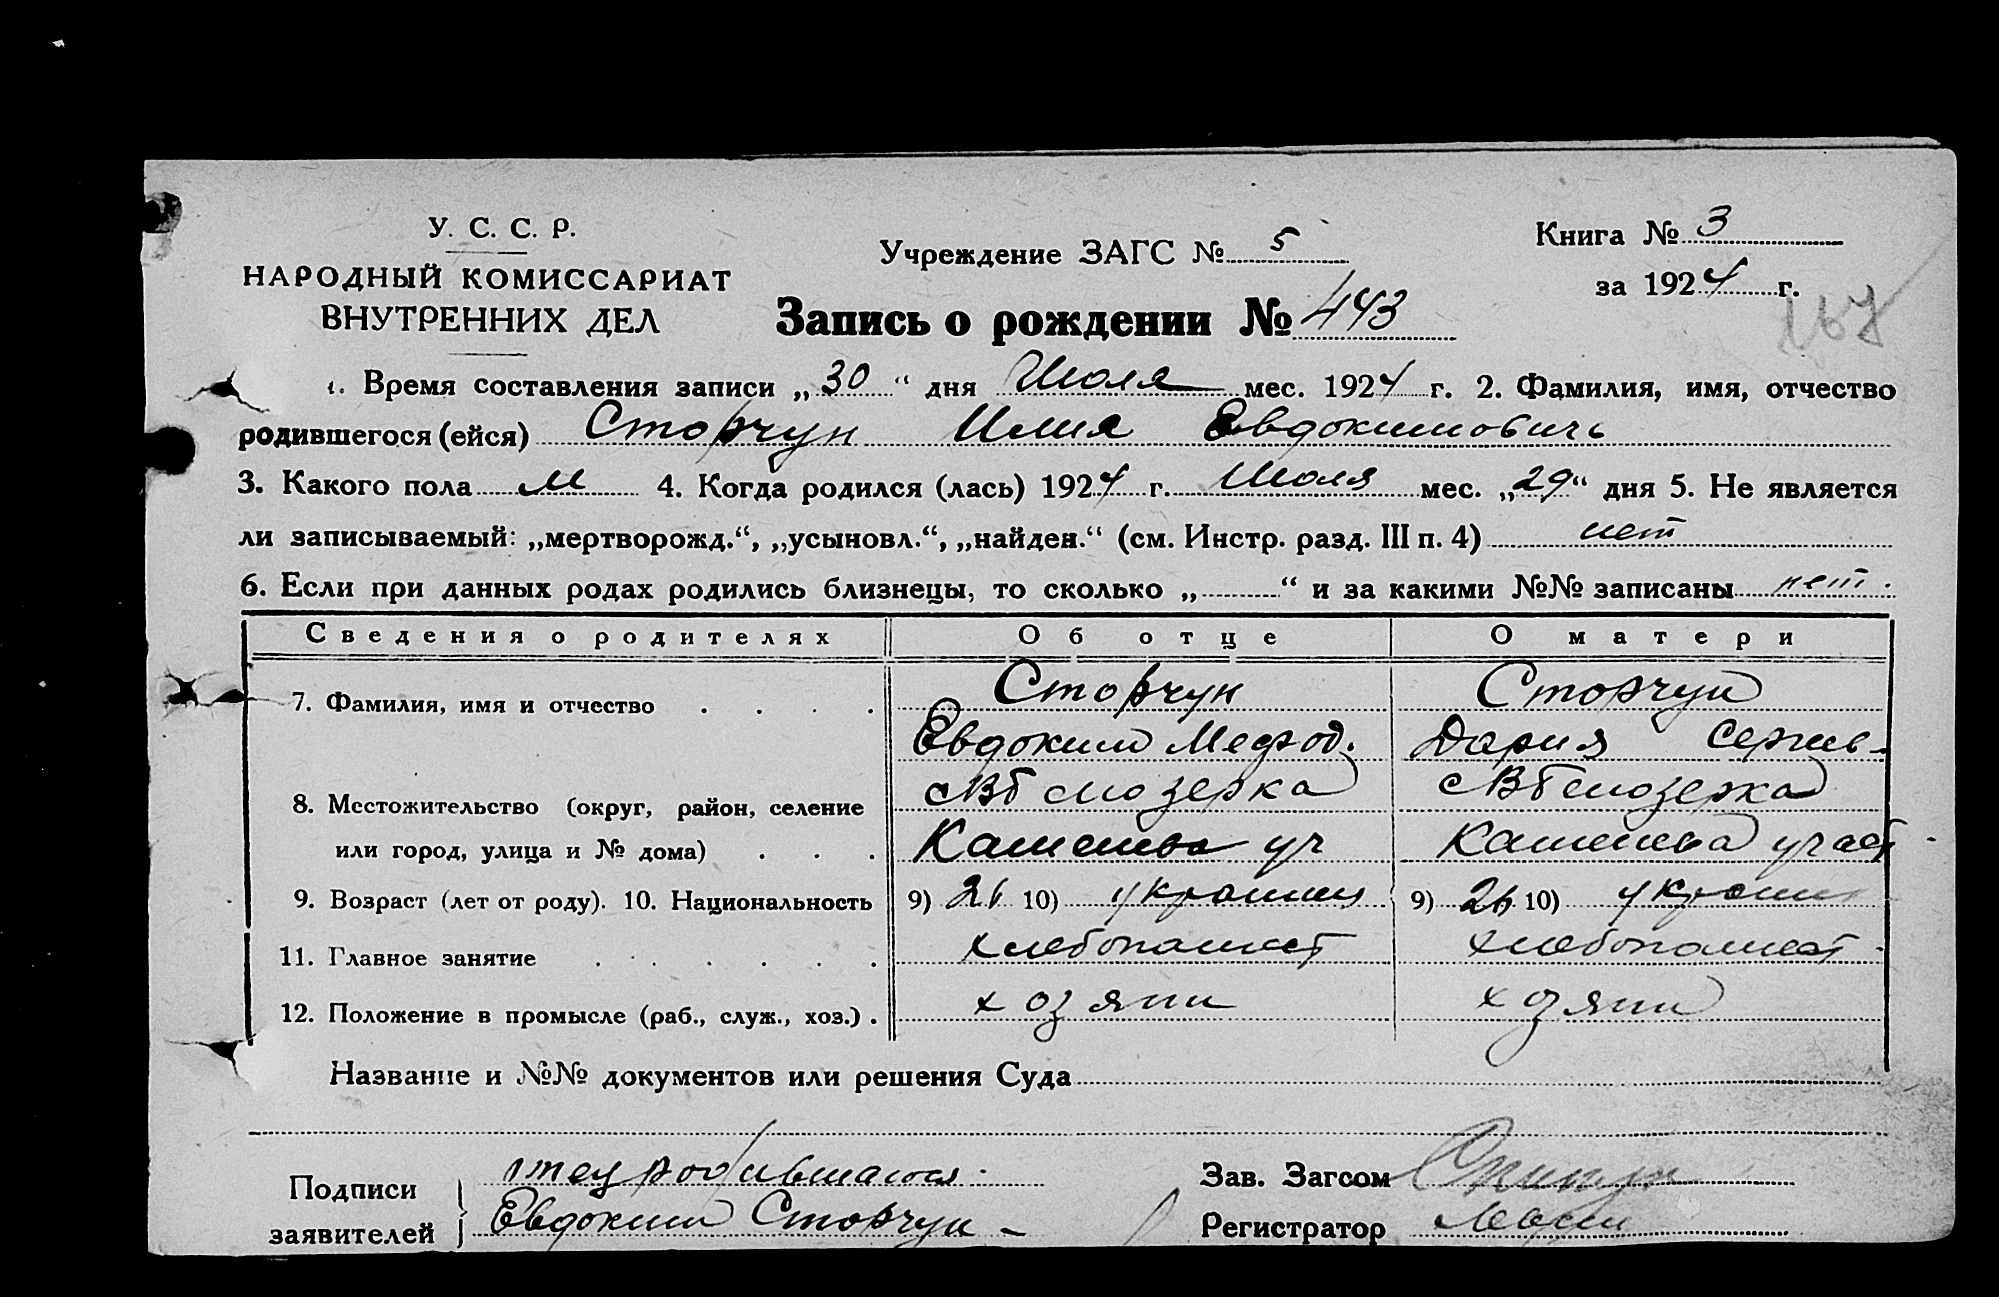 У. С. С. Р.
НАРОДНЫЙ КОМИССАРИАТ
ВНУТРЕННИХ ДЕЛ
Учреждение ЗАГС № 5
Книга № 3
за 1924 г.
167
Запись о рождении № 443
1. Время составления записи „30“ дня Июля мес. 1924 г. 2. Фамилия, имя, отчество
родившегося (ейся) Сторчун Илия Евдокимовичь
3. Какого пола м 4. Когда родился (лась) 1924 г. Июля мес. „29“ дня 5. Не является
ли записываемый: „мертворожд.“, „усыновл.“, „найден.“ (см. Инстр. разд. III п. 4) нет
6. Если при данных родах родились близнецы, то сколько „ “ и за какими №№ записаны нет.
Сведения о родителях Об отце О матери
7. Фамилия, имя и отчество Сторчун Сторчун
Евдоким Мефод. Дария Сергеев-
8. Местожительство (округ, район, селение Белозерка Белозерка
или город, улица и № дома) уч участ
9. Возраст (лет от роду). 10. Национальность 9) 26 10) украинец 9) 26 10) украин
11. Главное занятие хлебопашест хлебопашест
12. Положение в промысле (раб., служ., хоз.) хозяин хозяин
Название и №№ документов или решения Суда
Подписи
заявителей
Евдоким Сторчун
Зав. Загсом
Регистратор